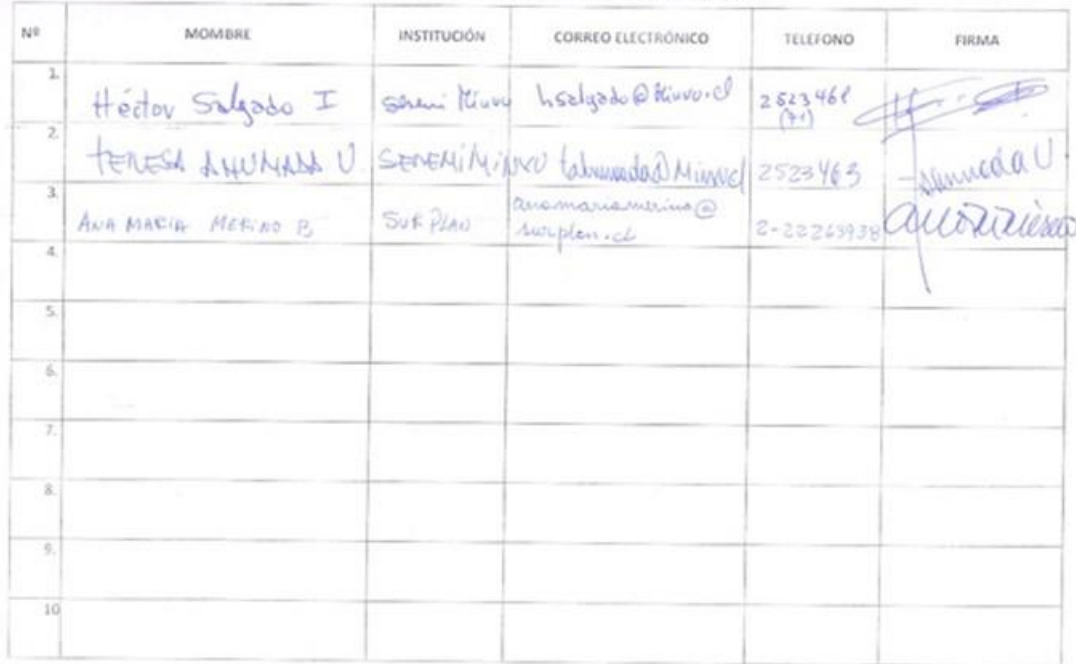 Nº MOMBRE INSTITUCIÓN CORREO ELECTRÓNICO TELEFONO FIRMA
1. Héctor Salgado I Seremi Minvu hsalgado@Minvu.cl 2523461
(71)
2. TERESA AHUMADA U SEREMI MINVU tahumada@Minvu.cl 2523463 Ahumada U
3. ANA MARIA MERINO B SUR PLAN anamariamerino@
surplan.cl 2-22263938
4.
5.
6.
7.
8.
9.
10